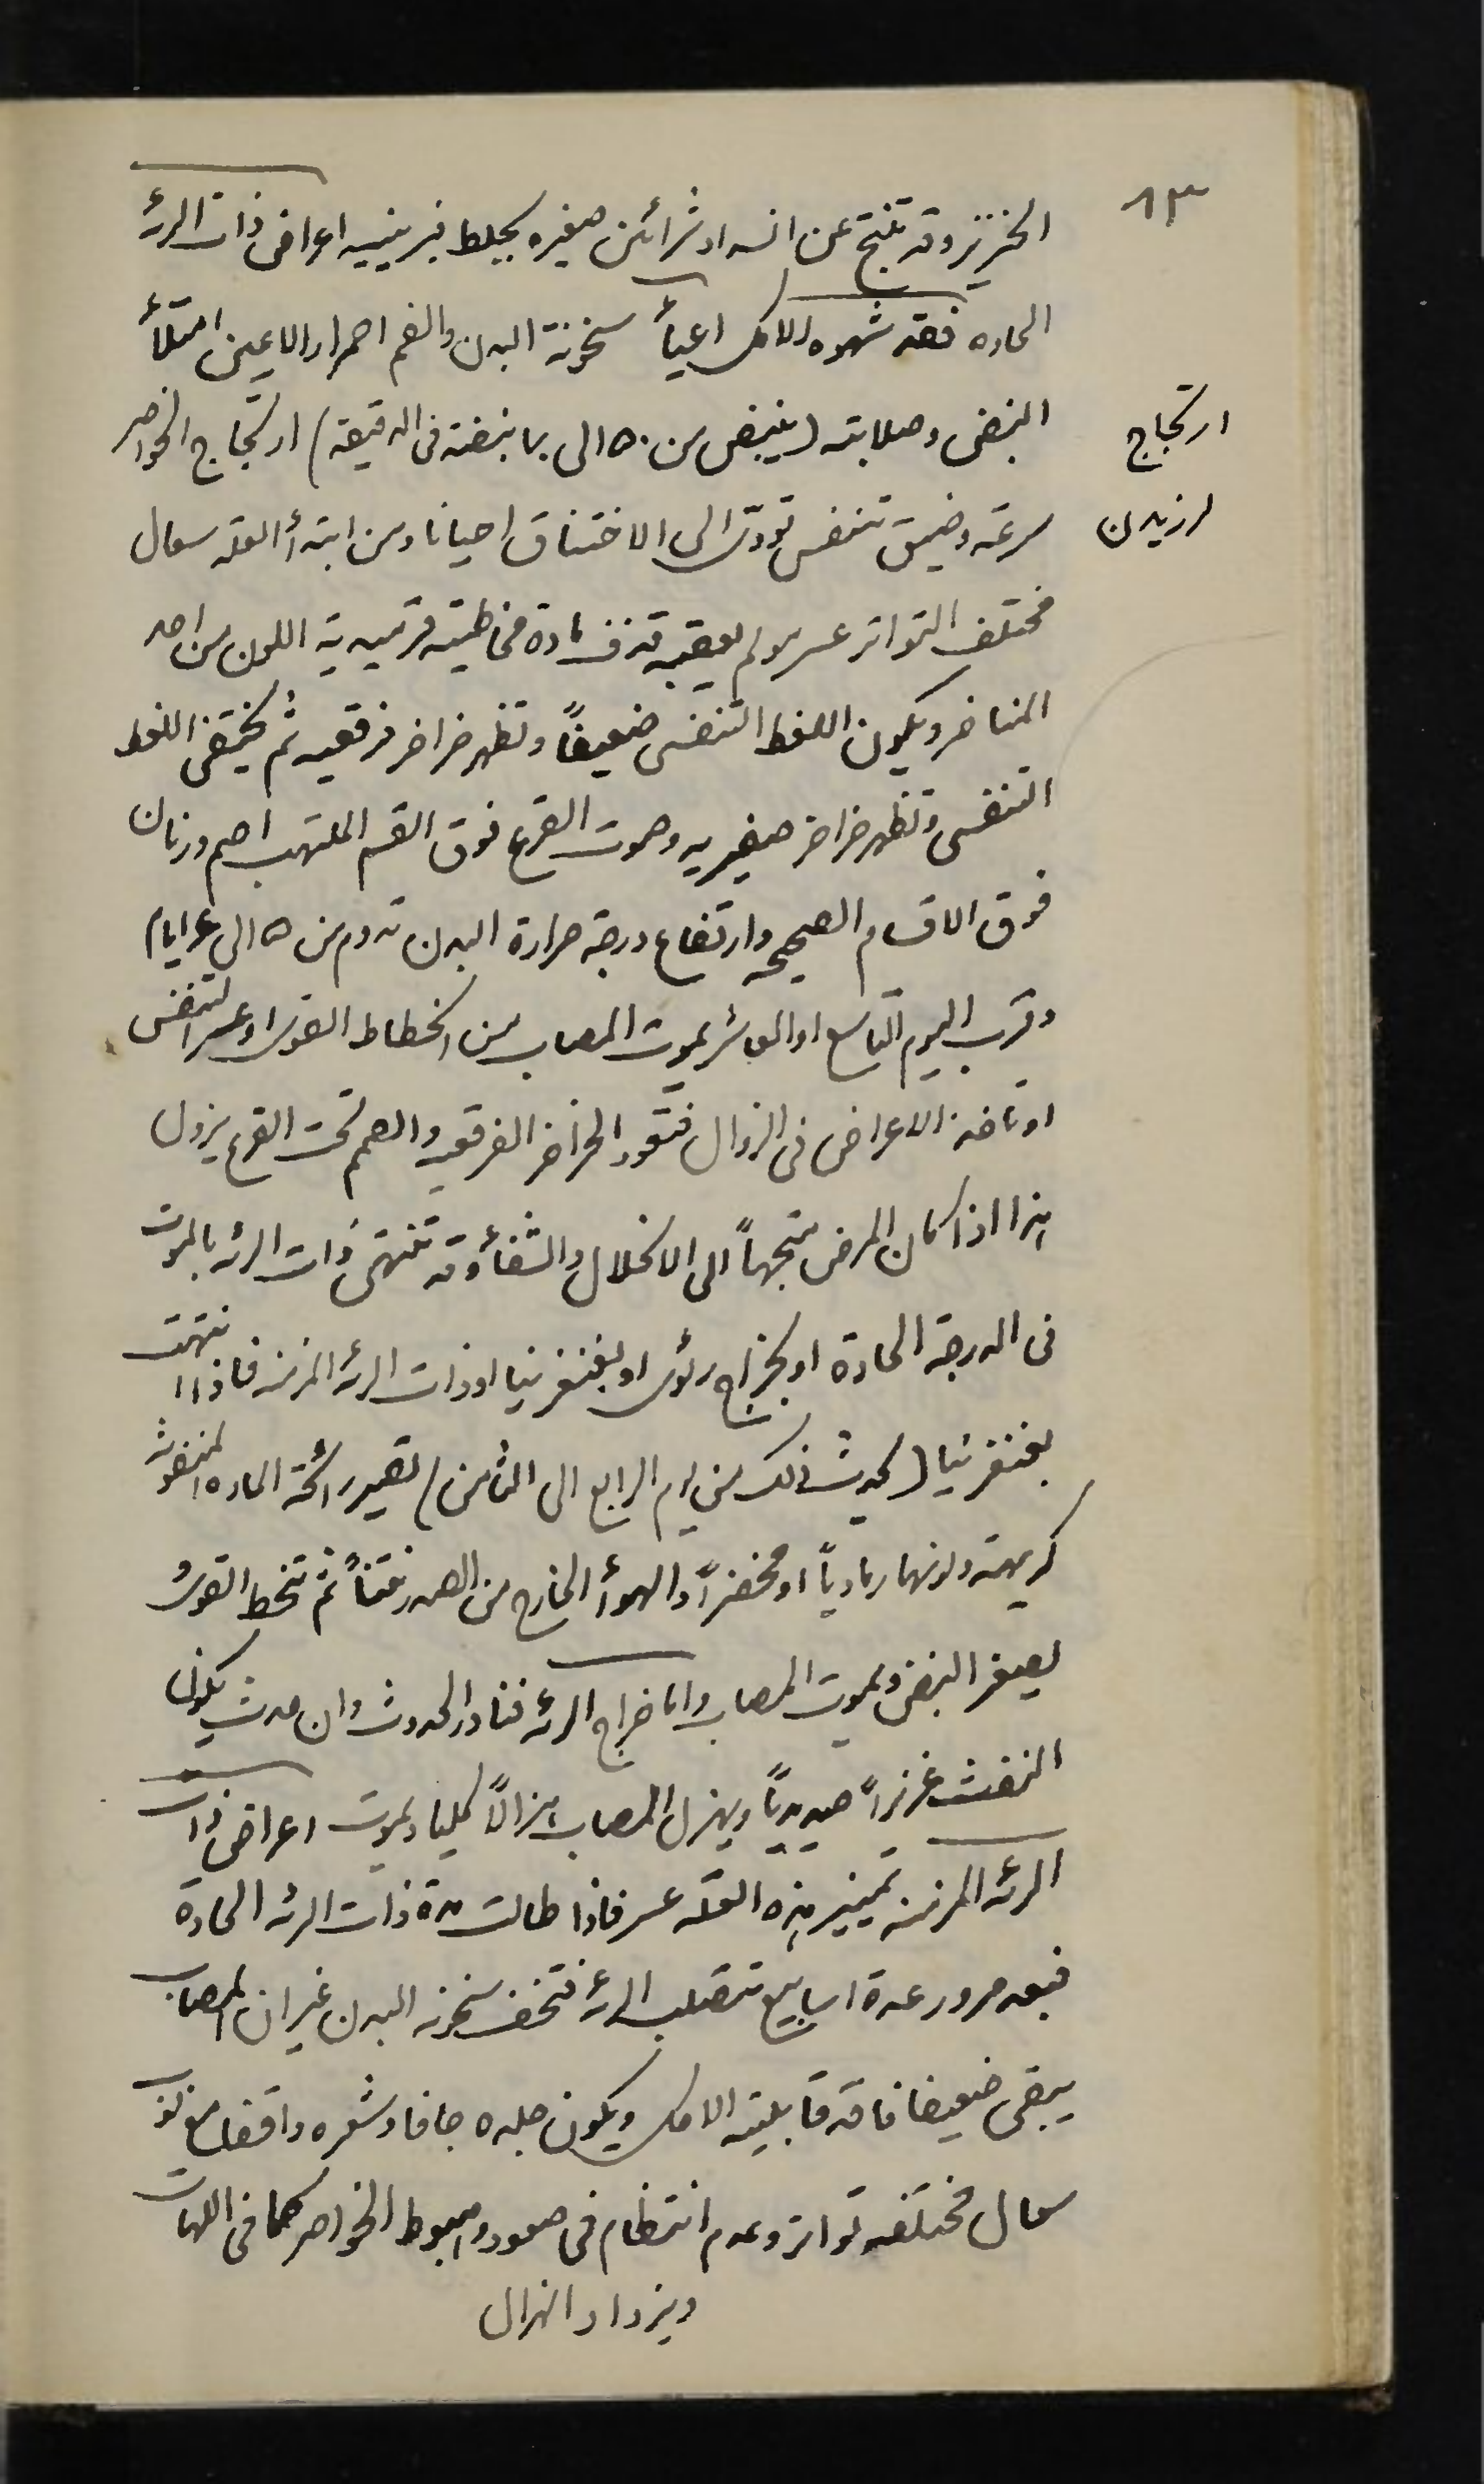 ٨٣
الخنزير وقد تنتج عن انسداد شرائين صغيره بجلط فبرينييه اعراض ذات الرئه
الحاده فقد شهوه الاكل اعيأ سخونة البدن والفم احمرار الاعين امتلأ
النبض وصلابته (ينبض من ٥٠ الى نبضته فى الدقيقه) ارتجاج الخواصر
ارتجاج
سرعته وضيق تنفس تودّى الى الاختناق احيانا ومن ابتدأ العله سعال
لرزيدن
مختلف التواتر عسر مولم يعقبه قذف مادة مخاطيته قرميديه اللون من احد
المناخر ويكون اللغط التنفسى ضعيفاً وتظهر خراخر فرقعيه ثم يختفى اللغط
التنفسى وتظهر خراخر صفيريه وصوت القرع فوق القسم الملتهب اصم ورنان
فوق الاقسام الصحيحه وارتفاع درجة حرارة البدن تدوم من ٥ الى ايام
وقرب اليوم التاسع او العاشر يموت المصاب من انحطاط القوى او عسر التنفس
او تاخذ الاعراض فى الزوال فتعود الخراخر الفرقعيه والصمم تحت القرع يزول
هذا اذا كان المرض متجهاً الى الانحلال والشفأ وقد تنتهى ذات الرئه بالموت
فى الدرجة الحادة او بخراج رئوى او بغنغرينيا او ذات الرئه المزمنه فاذا انتهت
بغنغرينيا (يحدث ذلك من يوم الرابع الى الثامن) تصير رائحة الماده المنفوثه
كريهته ولونها رمادياً او مخضراً والهوأ الخارج من الصدر نتناً ثم تنحط القوى
يصغر النبض ويموت المصاب واما خراج الرئه فنادر الحدوث وان حدث يكون
النفث غزيراً صديدياً ويهزل المصاب هزالاً كليا ويموت اعراض ذات
الرئه المزمنه تمييز هذه العله عسر فاذا طالت مدة ذات الرئه الحادة
فبعد مرور عدة اسابيع تتصلب الرئه فتخف سخونه البدن غير ان المصاب
يبقى ضعيفا فاقد قابليته الاكل ويكون جلده جافا وشعره واقفا مع نوب
سعال مختلفه تواتر وعدم انتظام فى صعود وهبوط الخواصر كما فى اللهات
ويزداد الهزال